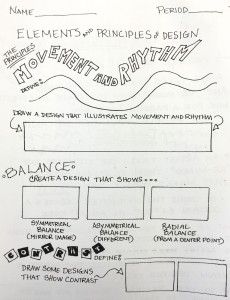 NAME PERIOD
ELEMENTS AND PRINCIPLES OF DESIGN
THE PRINCIPLES
MOVEMENT AND RHYTHM
DEFINE:
DRAW A DESIGN THAT ILLUSTRATES MOVEMENT AND RHYTHM
BALANCE
CREATE A DESIGN THAT SHOWS...
SYMMETRICAL BALANCE (MIRROR IMAGE)
ASYMMETRICAL BALANCE (DIFFERENT)
RADIAL BALANCE (FROM A CENTER POINT)
CONTRAST DEFINE:
DRAW SOME DESIGNS
THAT SHOW CONTRAST